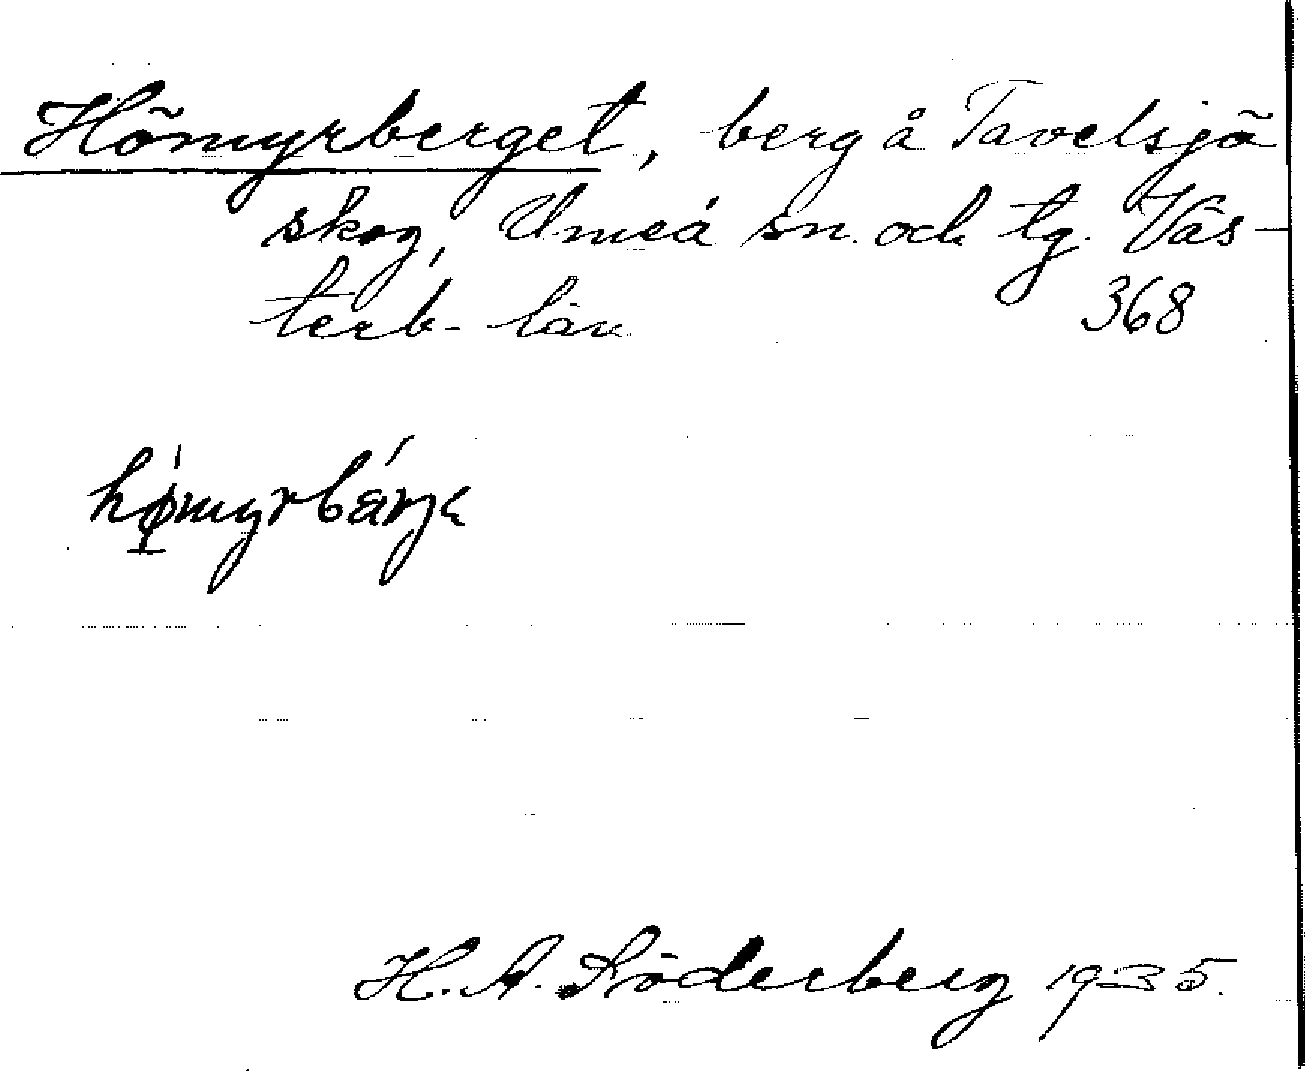 Hömyrberget, berg å Tavelsjö
skog, Umeå sn. och tg. Väs-
terb. län 368
hǿmyrbárje
H. A. Söderberg 1935.